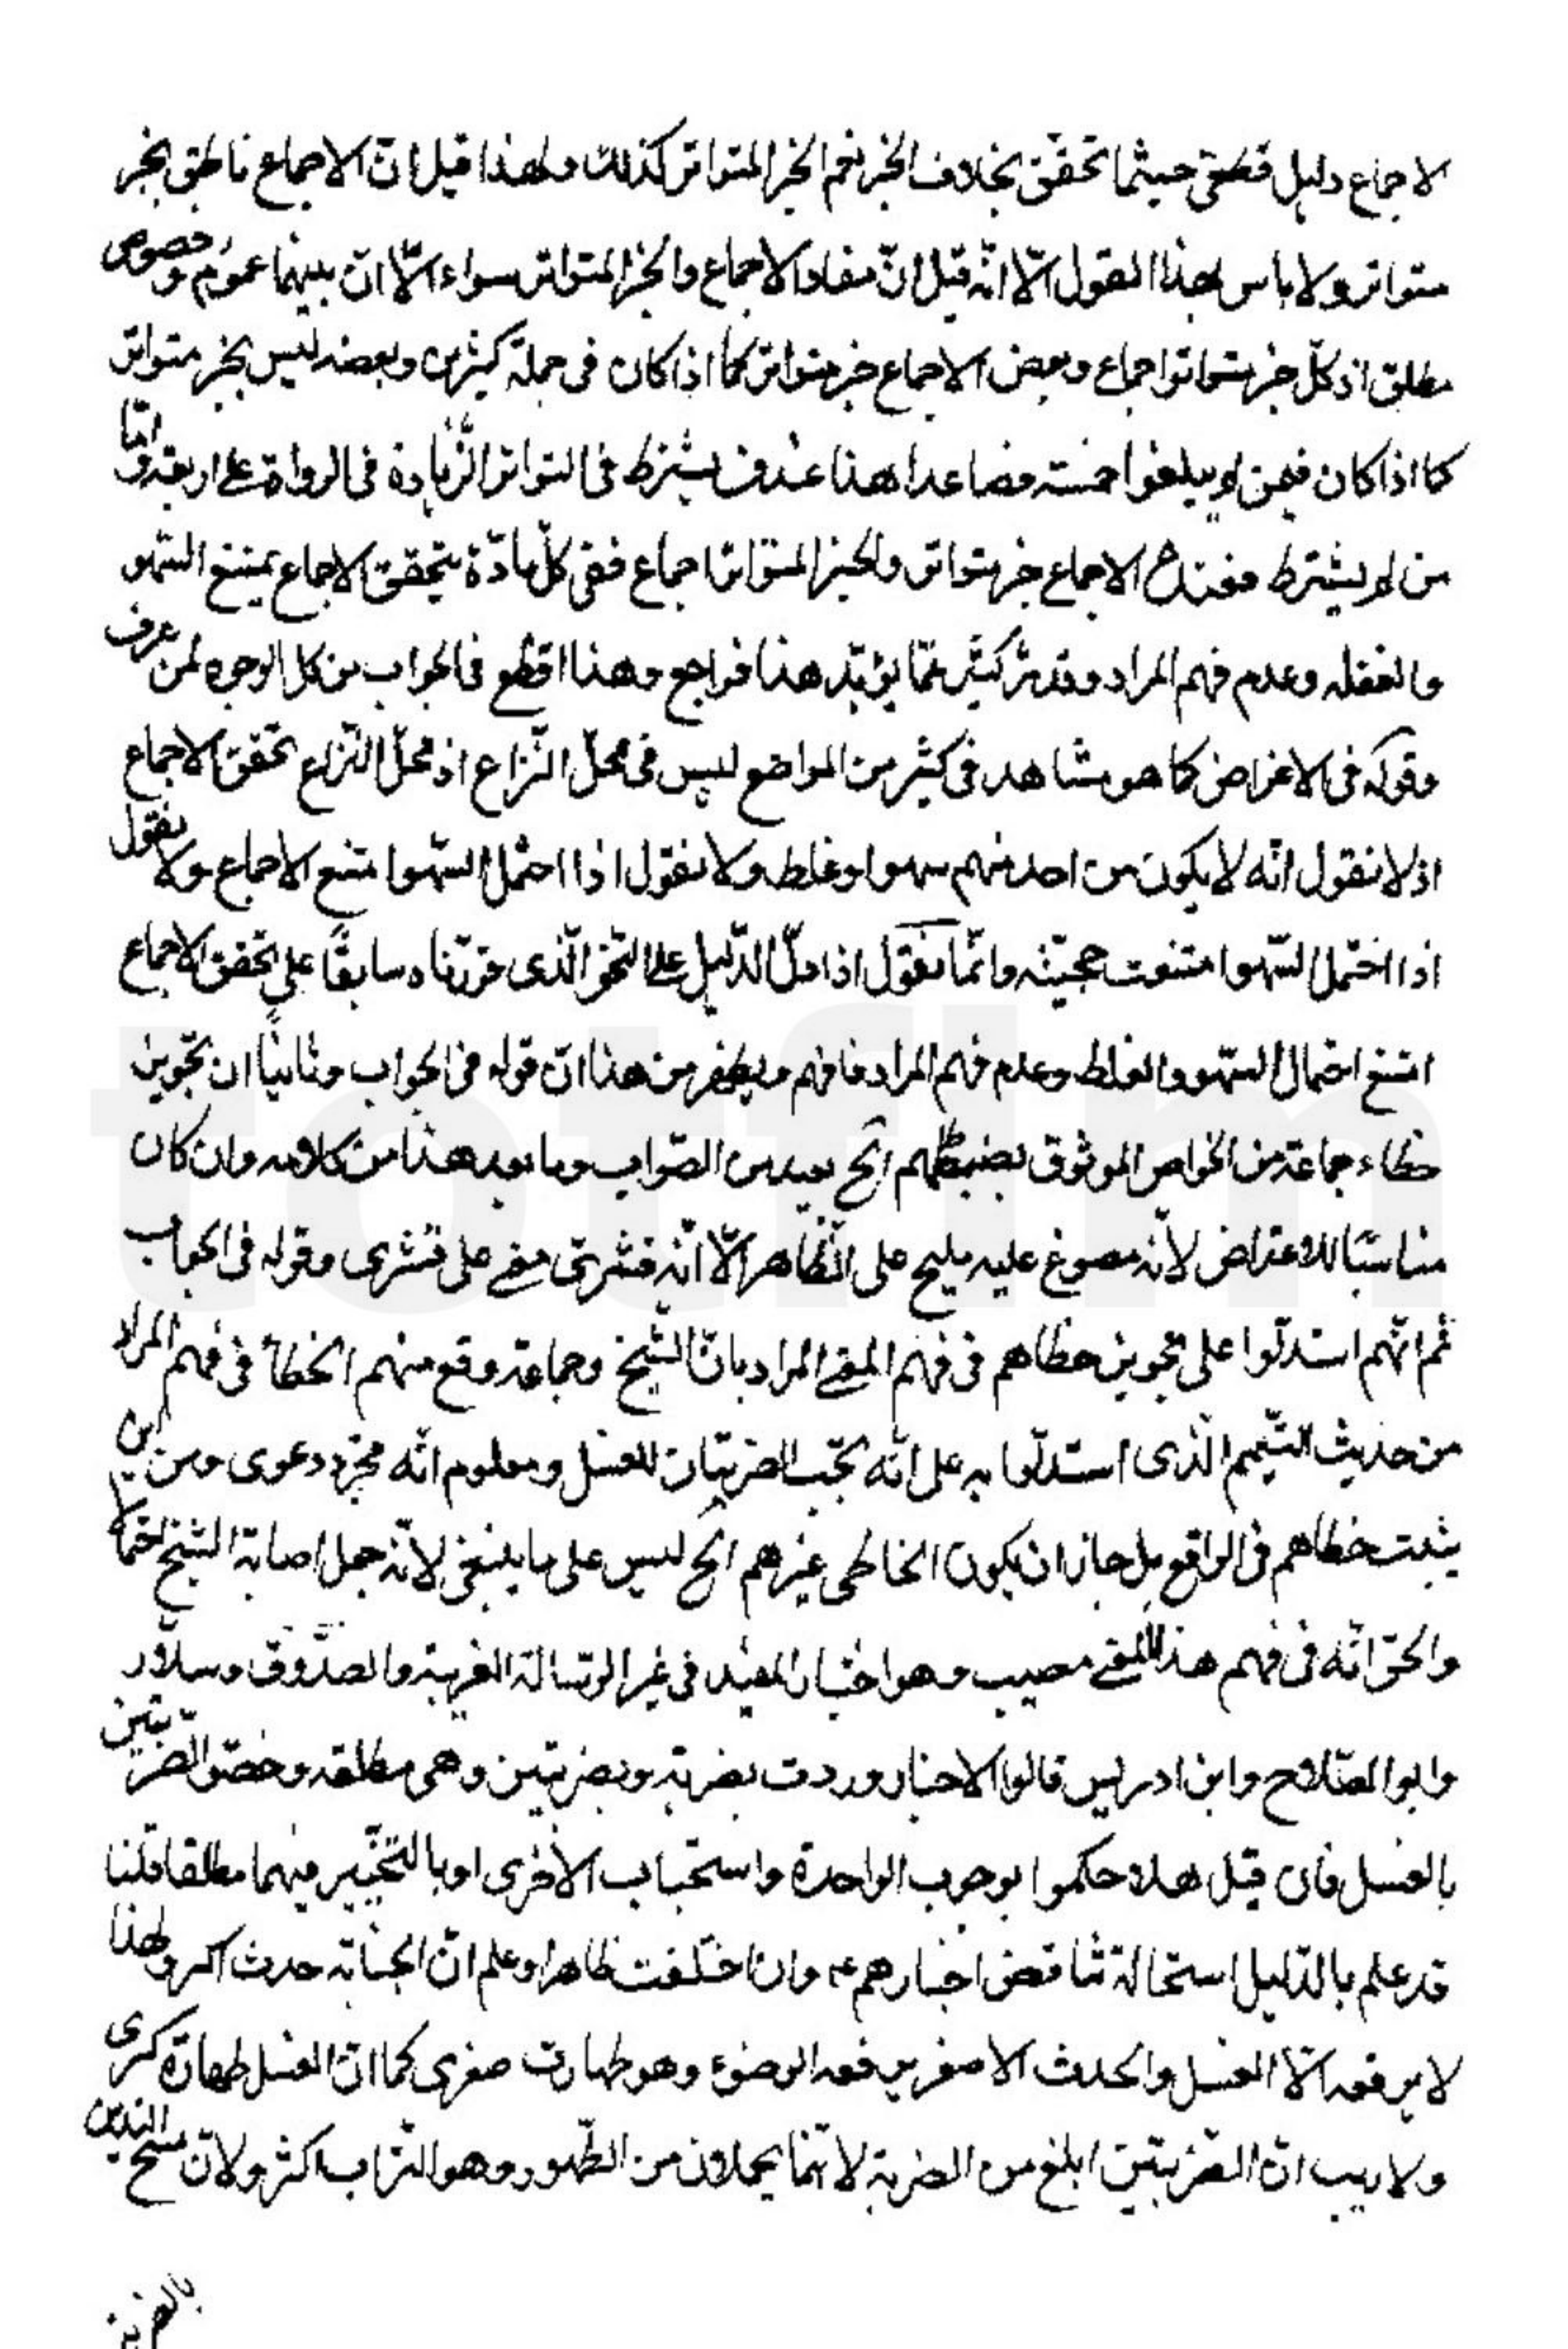 الاجماع دليل قطعىّ حيثما تحقّق بخلاف الخبر نعم الخبر المتواتر كذلك ولهذا قيل انّ الاجماع ناطق بخبر
متواتر ولا باس بهذا القول الّا انّه قيل انّ مفاد الاجماع والخبر المتواتر سواء الّا انّ بينهما عموم وخصوص
مطلق اذ كلّ خبر متواتر اجماع وبعض الاجماع خبر متواتر كما اذا كان فى جملة كثيرين وبعضه ليس بخبر متواتر
كما اذا كان فيمن لم يبلغوا خمسة فصاعدا هذا عند من يشترط فى التواتر الزّيادة فى الرواة على اربعة وامّا
من لم يشترط فعنده الاجماع خبر متواتر والخبر المتواتر اجماع ففى كلّ مادّة يتحقق الاجماع يمتنع السّهو
والغفلة وعدم فهم المراد وقد مرّ كثير ممّا يؤيّد هذا فراجع وهذا اقطع فى الجواب من كل الوجوه لمن عرف
وقوله فى الاعراض كما هو مشاهد فى كثير من المواضع ليس فى محلّ النّزاع اذ محلّ النّزاع تحقق الاجماع
اذ لا نقول انّه لا يكون من احد منهم سهوا وغلط ولا نقول اذا احتمل السّهو امتنع الاجماع ولا نقول
اذا احتمل السّهو امتنعت حجيّته وانّما نقول اذا دلّ الدّليل على النّحو الّذى قرّرناه سابقًا على تحقق الاجماع
امتنع احتمال السّهو والغلط وعدم فهم المراد فافهم ويظهر من هذا انّ قوله فى الجواب وثانيًا ان تجويز
خطاء جماعة من الخواص الموثوق بضبطهم الخ بعيد من الصّواب وما بعد هذا من كلامه وان كان
مناسبًا للاعتراض لانه مصوغ عليه مليح على الظّاهر الّا انّه قشرىّ مبنى على قشرى وقوله فى الجواب
ثم انّهم استدلّوا على تجويز خطاهم فى فهم المعنى المراد بانّ الشّيخ وجماعة وقع منهم الخطأ فى فهم المراد
من حديث التّيمم الّذى استدلّوا به على انّه تجب الضربتان للغسل ومعلوم انّه مجرّد دعوى ومن اين
يثبت خطاهم فى الواقع بل جاز ان يكون الخاطى غيرهم الخ ليس على ما ينبغى لانّه جعل اصابة الشيخ احتمالا
والحقّ انّه فى فهم هذا المعنى مصيب وهو اختيار المفيد فى غير الرّسالة الغرية والصّدوق وسلّار
وابو الصّلاح وابن ادريس قالوا الاخبار وردت بضربة وبضربتين وهى مطلقه وخصّوا الضربتين
بالغسل فان قيل هلا حكموا بوجوب الواحدة واستحباب الاخرى او بالتّخيير فيهما مطلقا قلنا
قد علم بالدّليل استحالة تناقض اخبارهم ع وان اختلفت ظاهرا وعلم انّ الجنابة حدث اكبر ولهذا
لا يرفعه الّا الغسل والحدث الاصغر يرفعه الوضوء وهو طهارت صغرى كما انّ الغسل طهارة كبرى
ولا ريب انّ الضّربتين ابلغ من الضربة لانّهما يحملان من الطّهور وهو التّراب اكثر ولانّ مسح اليدين
بالضربة